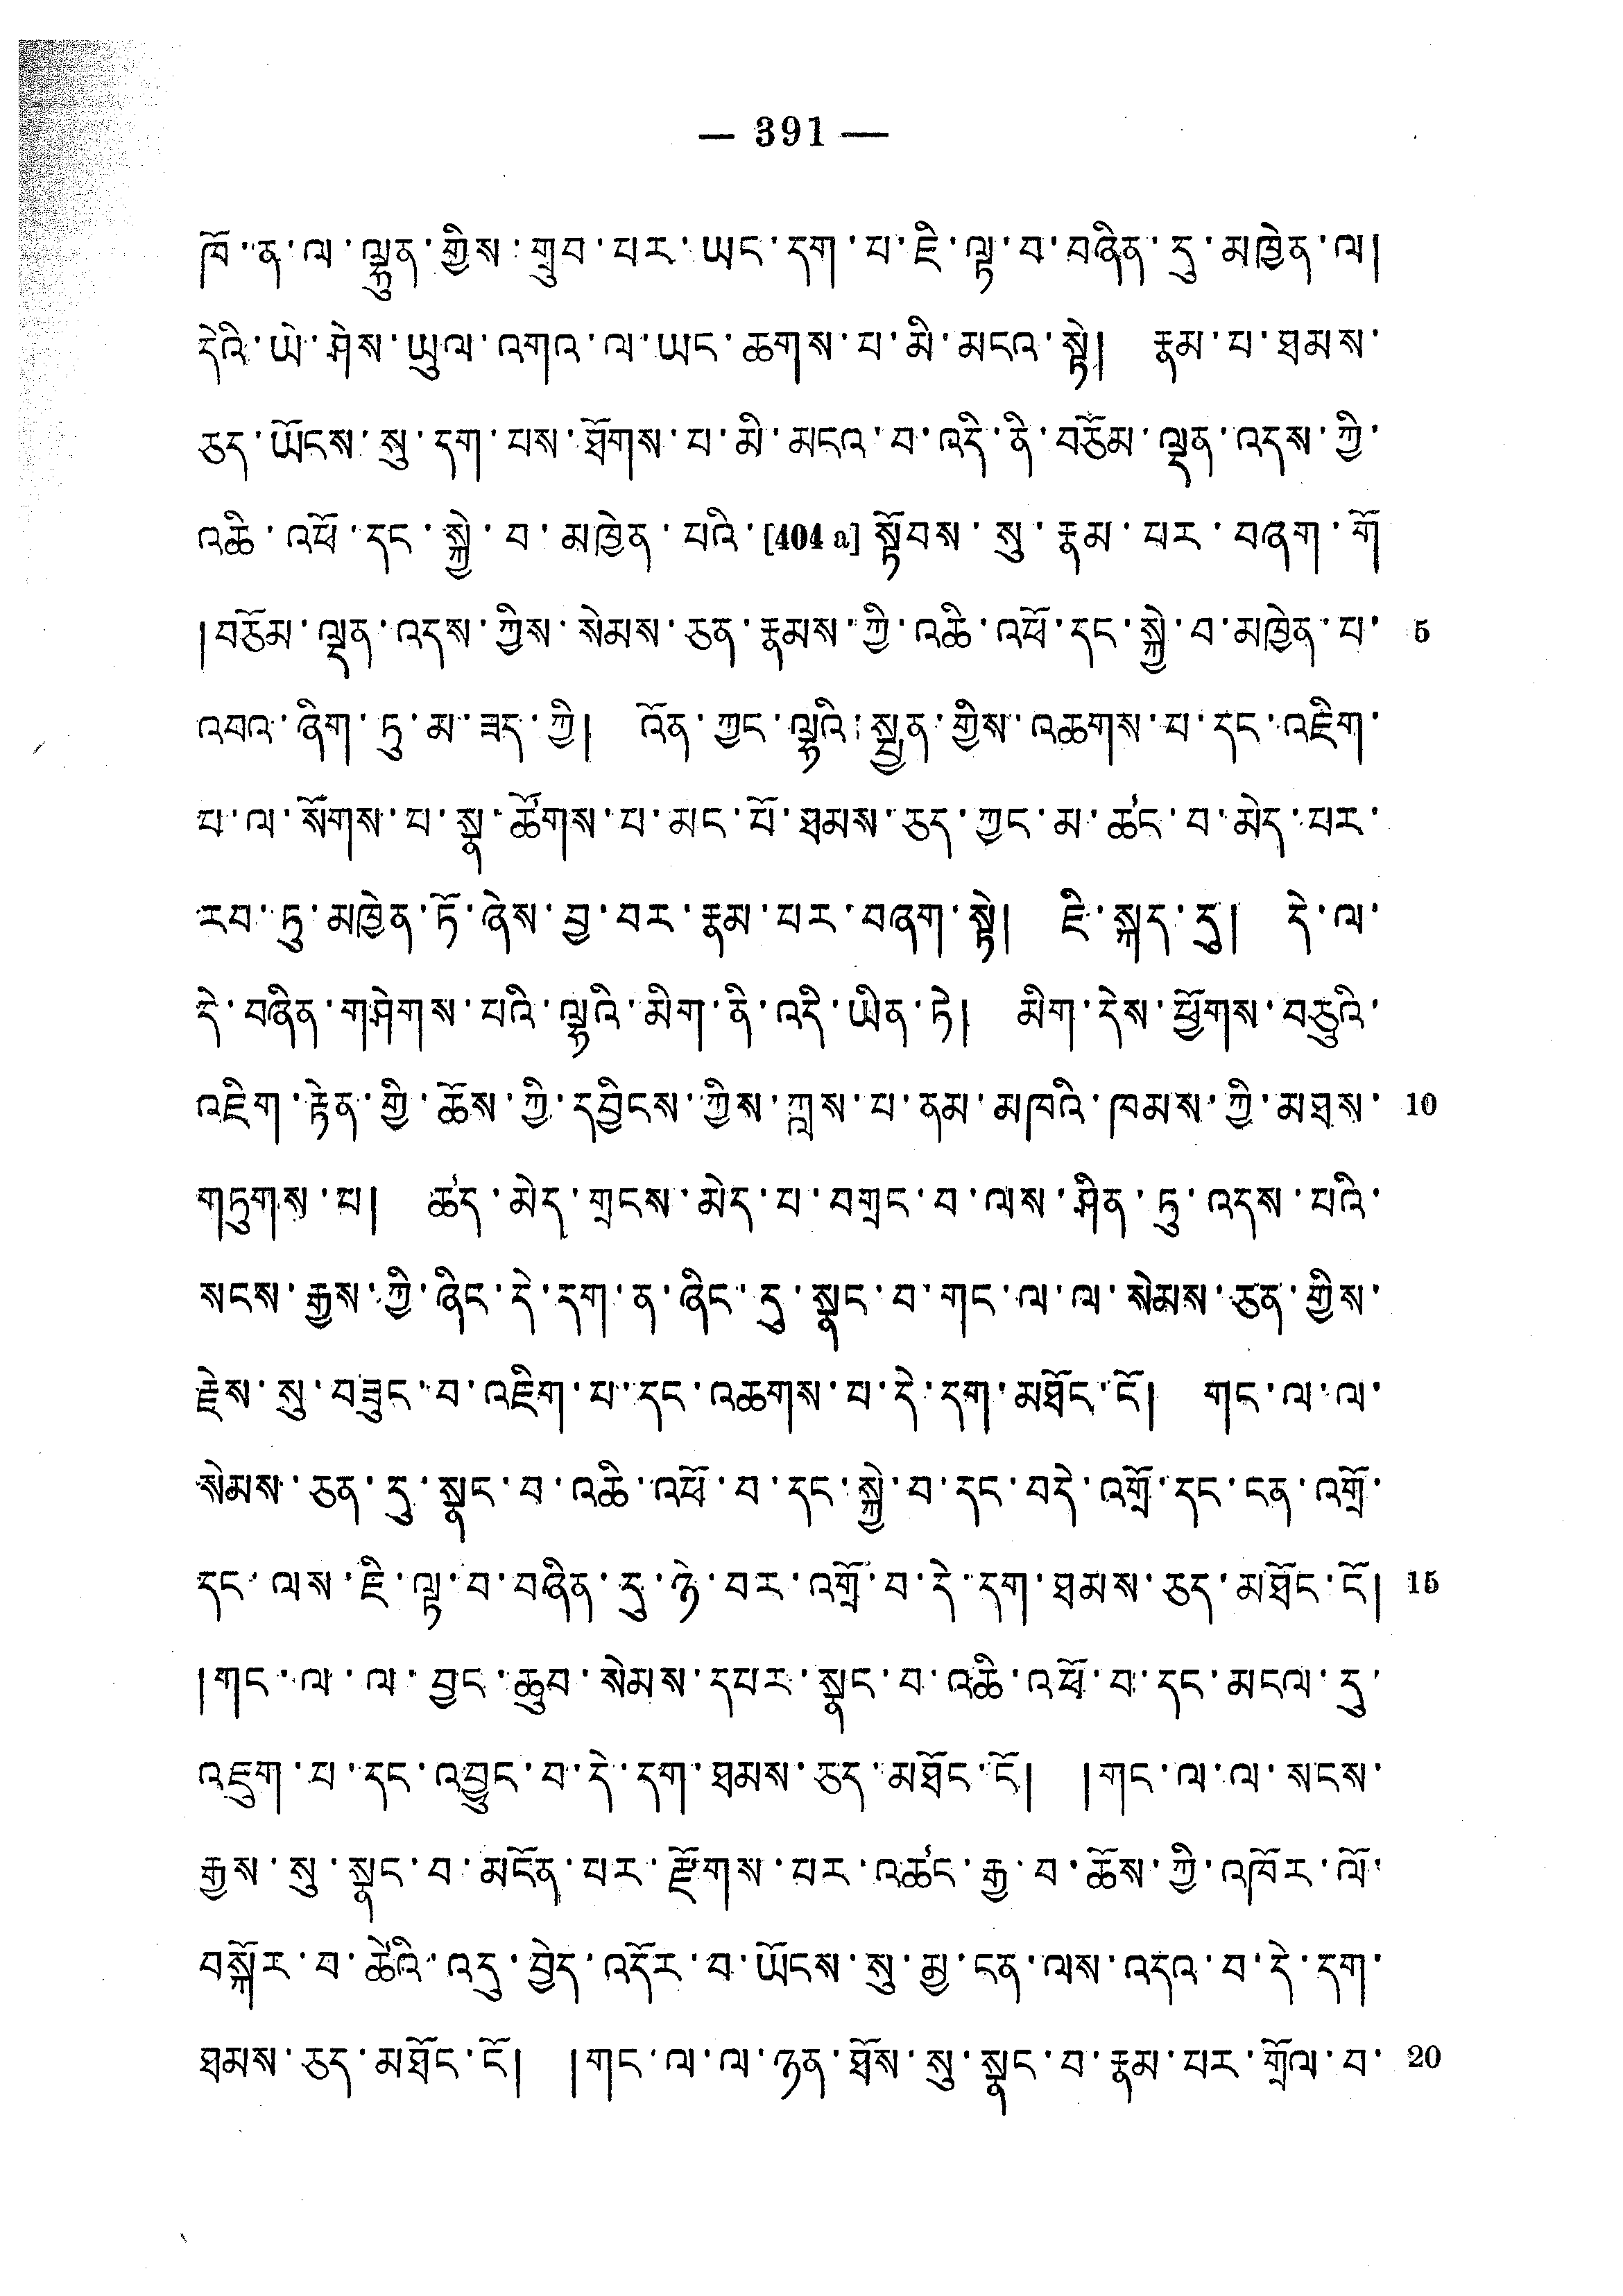 — 391 —
ཁོ་ན་ལ་ལྷུན་གྱིས་གྲུབ་པར་ཡང་དག་པ་ཇི་ལྟ་བ་བཞིན་དུ་མཁྱེན་ལ།
དེའི་ཡེ་ཤེས་ཡུལ་འགའ་ལ་ཡང་ཆགས་པ་མི་མངའ་སྟེ། རྣམ་པ་ཐམས་
ཅད་ཡོངས་སུ་དག་པས་ཐོགས་པ་མི་མངའ་བ་འདི་ནི་བཅོམ་ལྡན་འདས་ཀྱི་
འཆི་འཕོ་དང་སྐྱེ་བ་མཁྱེན་པའི་[404 a] སྟོབས་སུ་རྣམ་པར་བཞག་གོ
།བཅོམ་ལྡན་འདས་ཀྱིས་སེམས་ཅན་རྣམས་ཀྱི་འཆི་འཕོ་དང་སྐྱེ་བ་མཁྱེན་པ་ 5
འབའ་ཞིག་ཏུ་མ་ཟད་ཀྱི། འོན་ཀྱང་ལྷའི་སྤྱན་གྱིས་འཆགས་པ་དང་འཇིག་
པ་ལ་སོགས་པ་སྣ་ཚོགས་པ་མང་པོ་ཐམས་ཅད་ཀྱང་མ་ཚང་བ་མེད་པར་
རབ་ཏུ་མཁྱེན་ཏོ་ཞེས་བྱ་བར་རྣམ་པར་བཞག་སྟེ། ཇི་སྐད་དུ། དེ་ལ་
དེ་བཞིན་གཤེགས་པའི་ལྷའི་མིག་ནི་འདི་ཡིན་ཏེ། མིག་དེས་ཕྱོགས་བཅུའི་
འཇིག་རྟེན་གྱི་ཆོས་ཀྱི་དབྱིངས་ཀྱིས་ཀླས་པ་ནམ་མཁའི་ཁམས་ཀྱི་མཐས་ 10
གཏུགས་པ། ཚད་མེད་གྲངས་མེད་པ་བགྲང་བ་ལས་ཤིན་ཏུ་འདས་པའི་
སངས་རྒྱས་ཀྱི་ཞིང་དེ་དག་ན་ཞིང་དུ་སྣང་བ་གང་ལ་ལ་སེམས་ཅན་གྱིས་
རྗེས་སུ་བཟུང་བ་འཇིག་པ་དང་འཆགས་པ་དེ་དག་མཐོང་ངོ། གང་ལ་ལ་
སེམས་ཅན་དུ་སྣང་བ་འཆི་འཕོ་བ་དང་སྐྱེ་བ་དང་བདེ་འགྲོ་དང་ངན་འགྲོ་
དང་ལས་ཇི་ལྟ་བ་བཞིན་དུ་ཉེ་བར་འགྲོ་བ་དེ་དག་ཐམས་ཅད་མཐོང་ངོ། 15
།གང་ལ་ལ་བྱང་ཆུབ་སེམས་དཔར་སྣང་བ་འཆི་འཕོ་བ་དང་མངལ་དུ་
འཇུག་པ་དང་འབྱུང་བ་དེ་དག་ཐམས་ཅད་མཐོང་ངོ། །གང་ལ་ལ་སངས་
རྒྱས་སུ་སྣང་བ་མངོན་པར་རྫོགས་པར་འཚང་རྒྱ་བ་ཆོས་ཀྱི་འཁོར་ལོ་
བསྐོར་བ་ཚེའི་འདུ་བྱེད་འདོར་བ་ཡོངས་སུ་མྱ་ངན་ལས་འདའ་བ་དེ་དག་
ཐམས་ཅད་མཐོང་ངོ། །གང་ལ་ལ་ཉན་ཐོས་སུ་སྣང་བ་རྣམ་པར་གྲོལ་བ་ 20